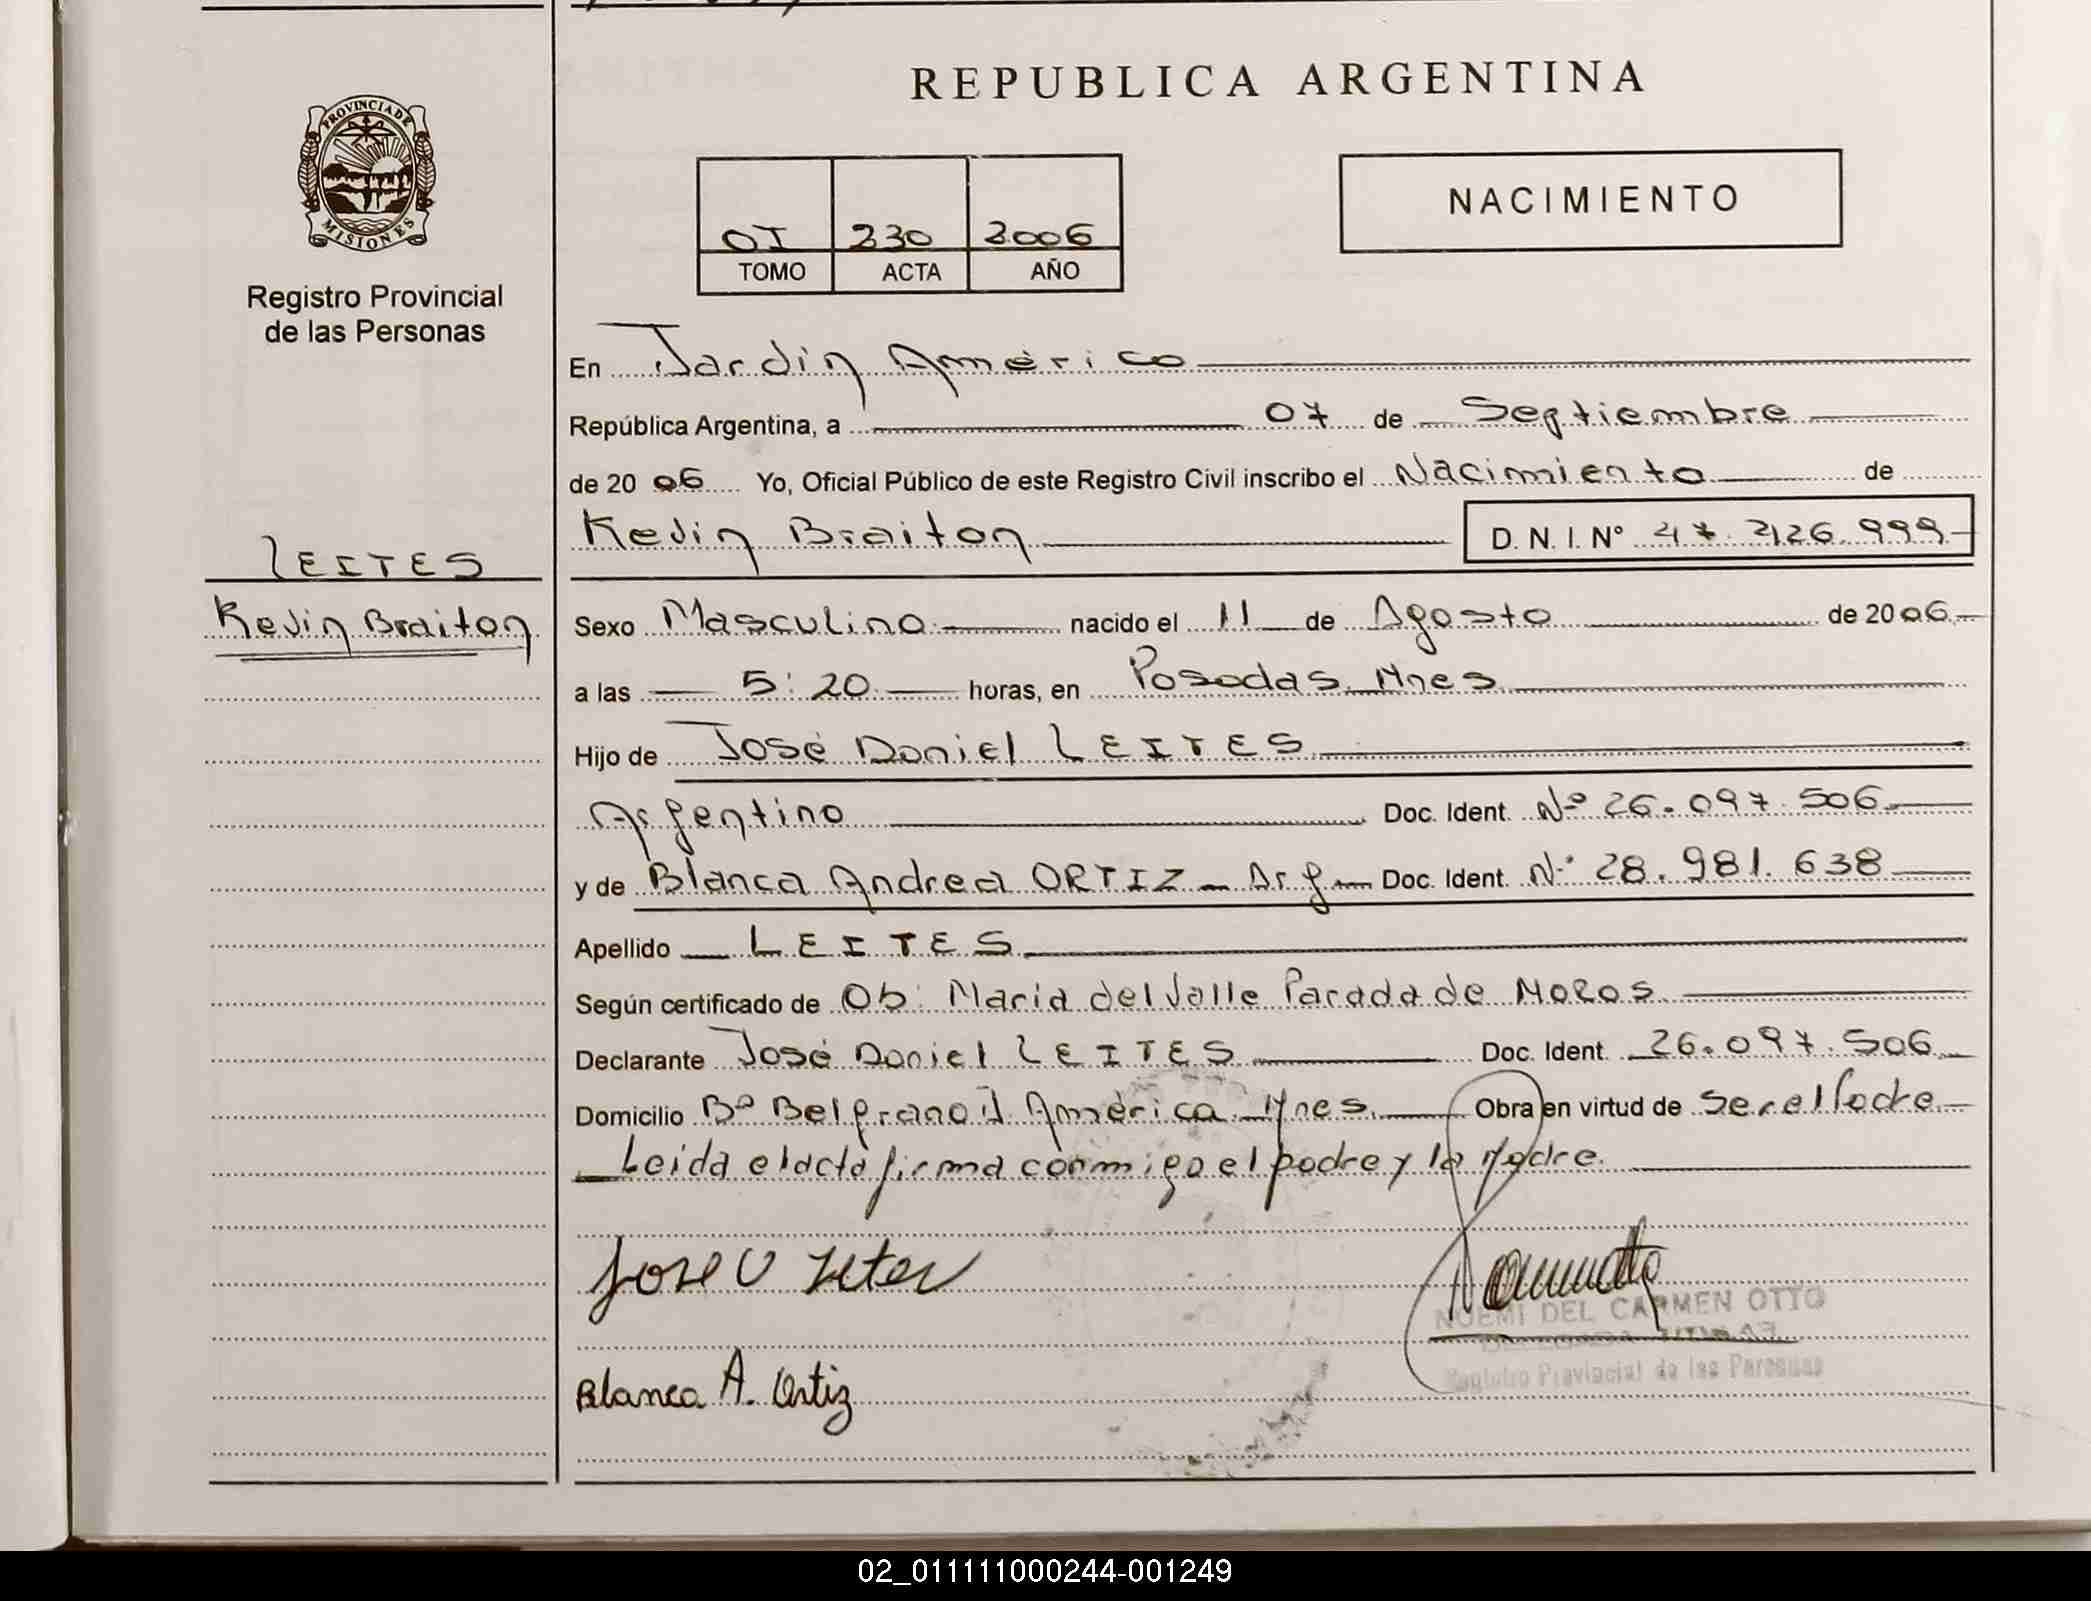 REPUBLICA ARGENTINA
PROVINCIA DE
MISIONES
Registro Provincial
de las Personas
NACIMIENTO
OI 230 2006
TOMO ACTA AÑO
En Jardín América
República Argentina, a 07 de Septiembre
de 2006 Yo, Oficial Público de este Registro Civil inscribo el Nacimiento de
Kevin Braiton D. N. I. N° 47.426.999
LEITES
Kevin Braiton
Sexo Masculino nacido el 11 de Agosto de 2006
a las 5:20 horas, en Posadas Mnes
Hijo de José Daniel LEITES
Argentino Doc. Ident. Nº 26.097.506
y de Blanca Andrea ORTIZ - Arg Doc. Ident. N° 28.981.638
Apellido LEITES
Según certificado de Ob: Maria del Valle Parada de MOROS
Declarante José Daniel LEITES Doc. Ident. 26.097.506
Domicilio Bº Belgrano J América Mnes Obra en virtud de Ser el Padre
Leida el acta firma conmigo el padre y la Madre.
Blanca A. Ortiz
NOEMI DEL CARMEN OTTO
DELEGADA TITULAR
Registro Provincial de las Personas
02_011111000244-001249